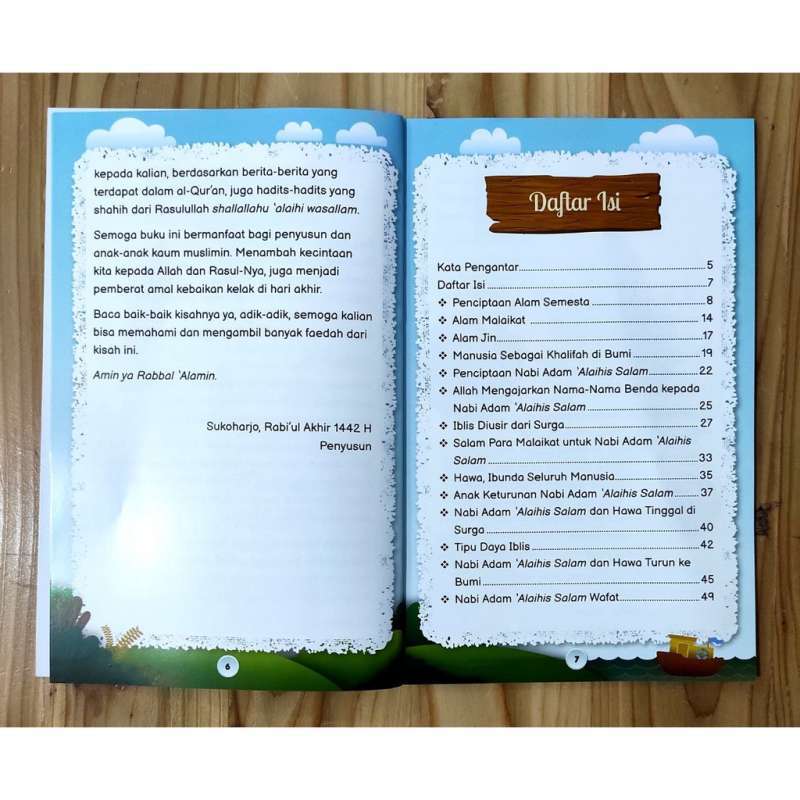 kepada kalian, berdasarkan berita-berita yang
terdapat dalam al-Qur'an, juga hadits-hadits yang
shahih dari Rasulullah shallallahu 'alaihi wasallam.
Semoga buku ini bermanfaat bagi penyusun dan
anak-anak kaum muslimin. Menambah kecintaan
kita kepada Allah dan Rasul-Nya, juga menjadi
pemberat amal kebaikan kelak di hari akhir.
Baca baik-baik kisahnya ya, adik-adik, semoga kalian
bisa memahami dan mengambil banyak faedah dari
kisah ini.
Amin ya Rabbal 'Alamin.
Sukoharjo, Rabi'ul Akhir 1442 H
Penyusun
6
Daftar Isi
Kata Pengantar 5
Daftar Isi 7
❖ Penciptaan Alam Semesta 8
❖ Alam Malaikat 14
❖ Alam Jin 17
❖ Manusia Sebagai Khalifah di Bumi 19
❖ Penciptaan Nabi Adam 'Alaihis Salam 22
❖ Allah Mengajarkan Nama-Nama Benda kepada
Nabi Adam 'Alaihis Salam 25
❖ Iblis Diusir dari Surga 27
❖ Salam Para Malaikat untuk Nabi Adam 'Alaihis
Salam 33
❖ Hawa, Ibunda Seluruh Manusia 35
❖ Anak Keturunan Nabi Adam 'Alaihis Salam 37
❖ Nabi Adam 'Alaihis Salam dan Hawa Tinggal di
Surga 40
❖ Tipu Daya Iblis 42
❖ Nabi Adam 'Alaihis Salam dan Hawa Turun ke
Bumi 45
❖ Nabi Adam 'Alaihis Salam Wafat 49
7